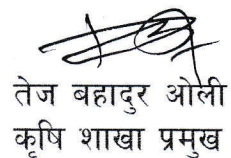 तेज बहादुर ओली
कृषि शाखा प्रमुख